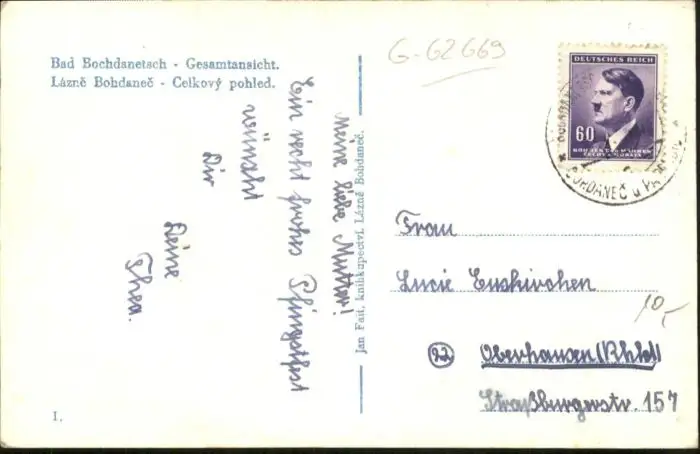 Bad Bochdanetsch - Gesamtansicht.
Lázně Bohdaneč - Celkový pohled.
G-62669
DEUTSCHES REICH
60
BÖHMEN UND MÄHREN
ČECHY A MORAVA
BOHDANEČ u
meine liebe Mutter!
Ein recht frohes Pfingstfest
wünscht
Dir
Deine
Thea.
Jan Fait, knihkupectví, Lázně Bohdaneč.
Frau
Lucie Euskirchen
10,-
(22) Oberhausen (Rhld)
Straßburgerstr. 157
1.